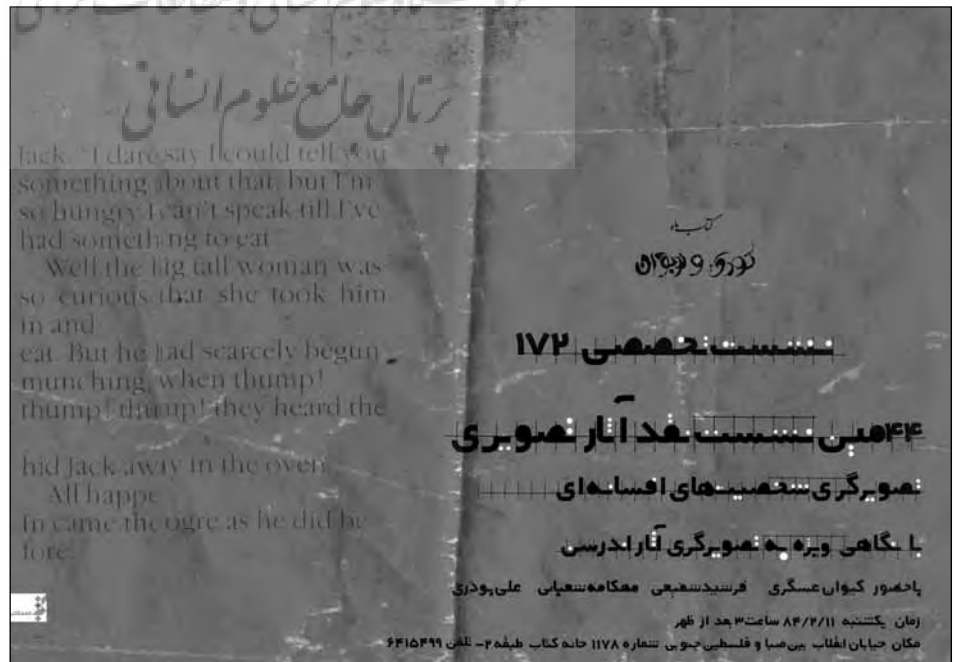 پرتال جامع علوم انسانی
Jack. "I dare say I could tell you
something about that, but I'm
so hungry I can't speak till I've
had something to eat
Well the big tall woman was
so curious that she took him
in and
eat. But he had scarcely begun
munching, when thump!
thump! thump! they heard the
hid Jack away in the oven
All happe
In came the ogre as he did be
fore
کتاب ماه
کودک و نوجوان
نشست تخصصی ۱۷۲
۴۴مین نشست نقد آثار تصویری
تصویرگری شخصیت‌های افسانه‌ای
با نگاهی ویژه به تصویرگری آثار اندرسن
باحضور کیوان عسگری فرشید شفیعی مهکامه شعبانی علی بوذری
زمان یکشنبه ۸۴/۲/۱۱ ساعت ۳ بعد از ظهر
مکان خیابان انقلاب بین صبا و فلسطین جنوبی شماره ۱۱۷۸ خانه کتاب طبقه ۲- تلفن ۶۴۱۵۴۹۹